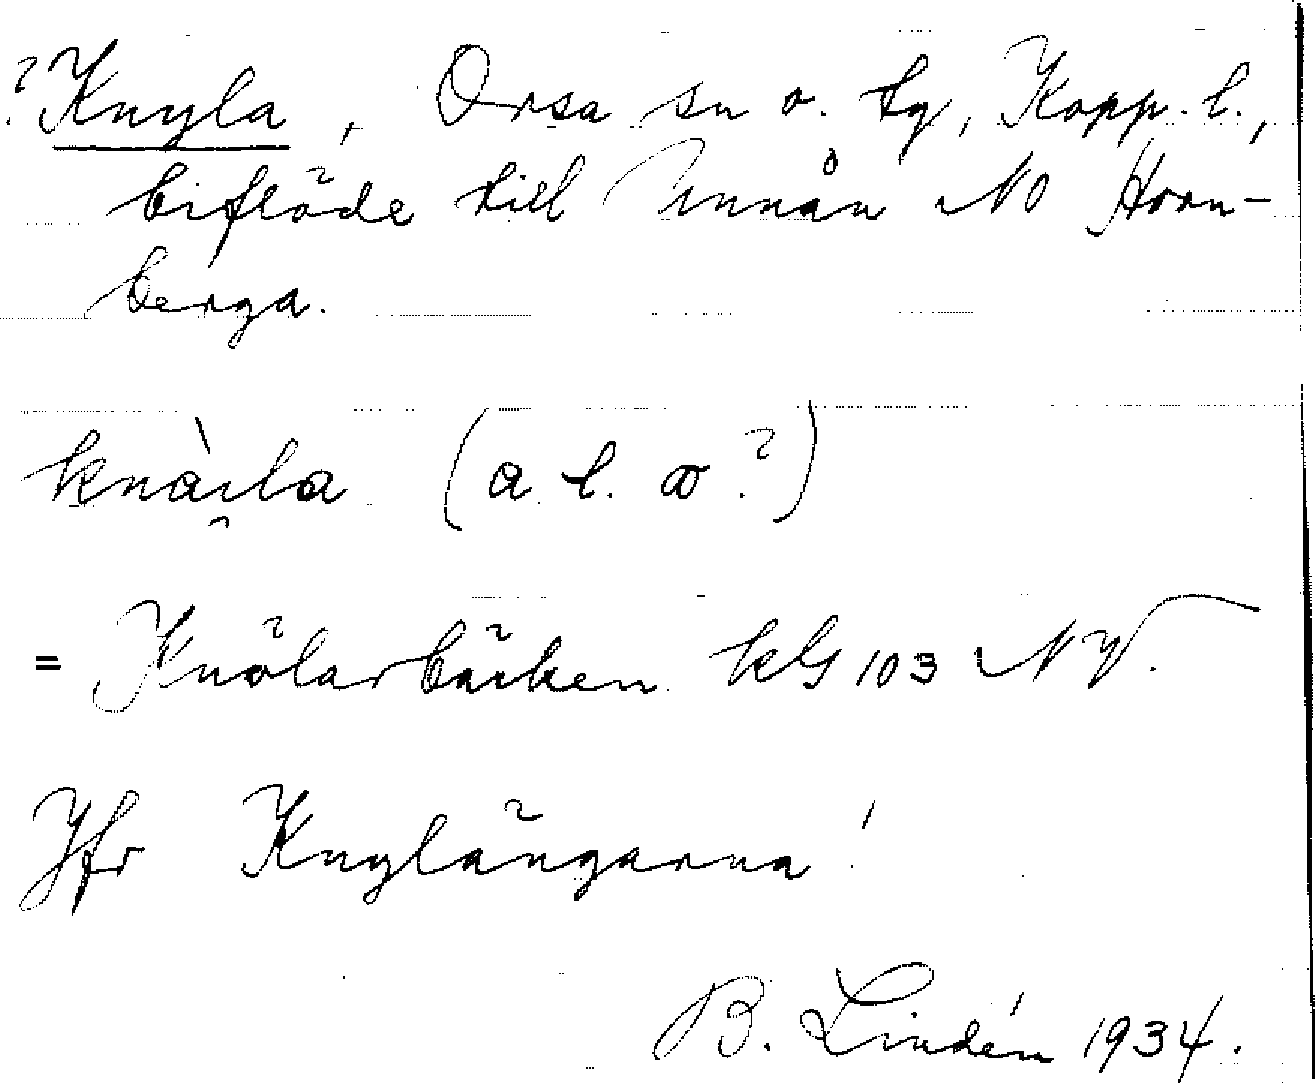 ? Knyla, Orsa sn o. tg, Kopp. l.,
biflöde till Unnån NO Horn-
berga.
knàı̯la (a l. ɷ?)
= Knölarbäcken kG 103 NV.
Jfr Knylängarna!
B. Lindén 1934.